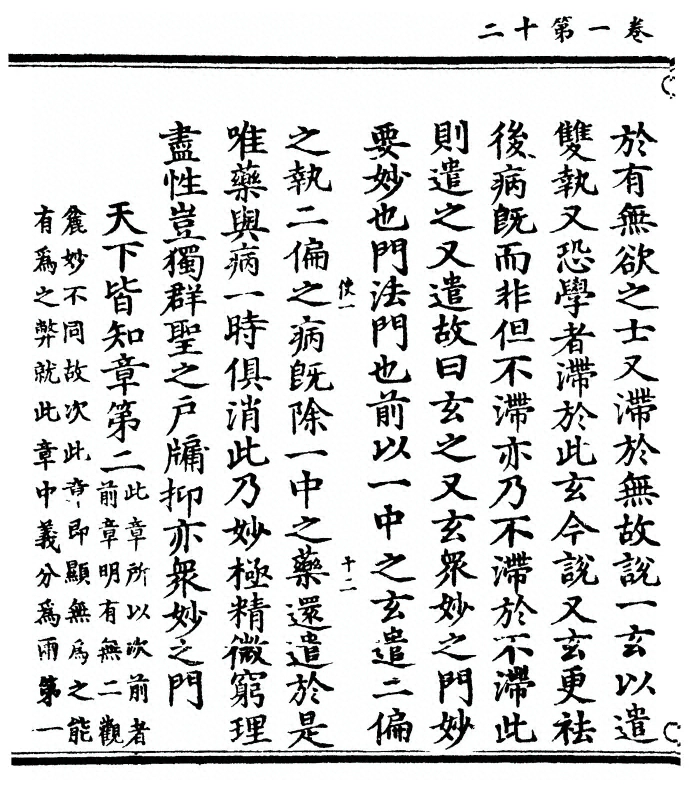 卷一第十二
於有無欲之士又滯於無故說一玄以遣
雙執又恐學者滯於此玄今說又玄更祛
後病既而非但不滯亦乃不滯於不滯此
則遣之又遣故曰玄之又玄眾妙之門妙
要妙也門法門也前以一中之玄遣二偏
使一
十二
之執二偏之病既除一中之藥還遣於是
唯藥與病一時俱消此乃妙極精微窮理
盡性豈獨群聖之戶牖抑亦眾妙之門
天下皆知章第二
此章所以次前者
前章明有無二觀
麁妙不同故次此章即顯無為之能
有為之弊就此章中義分為兩第一